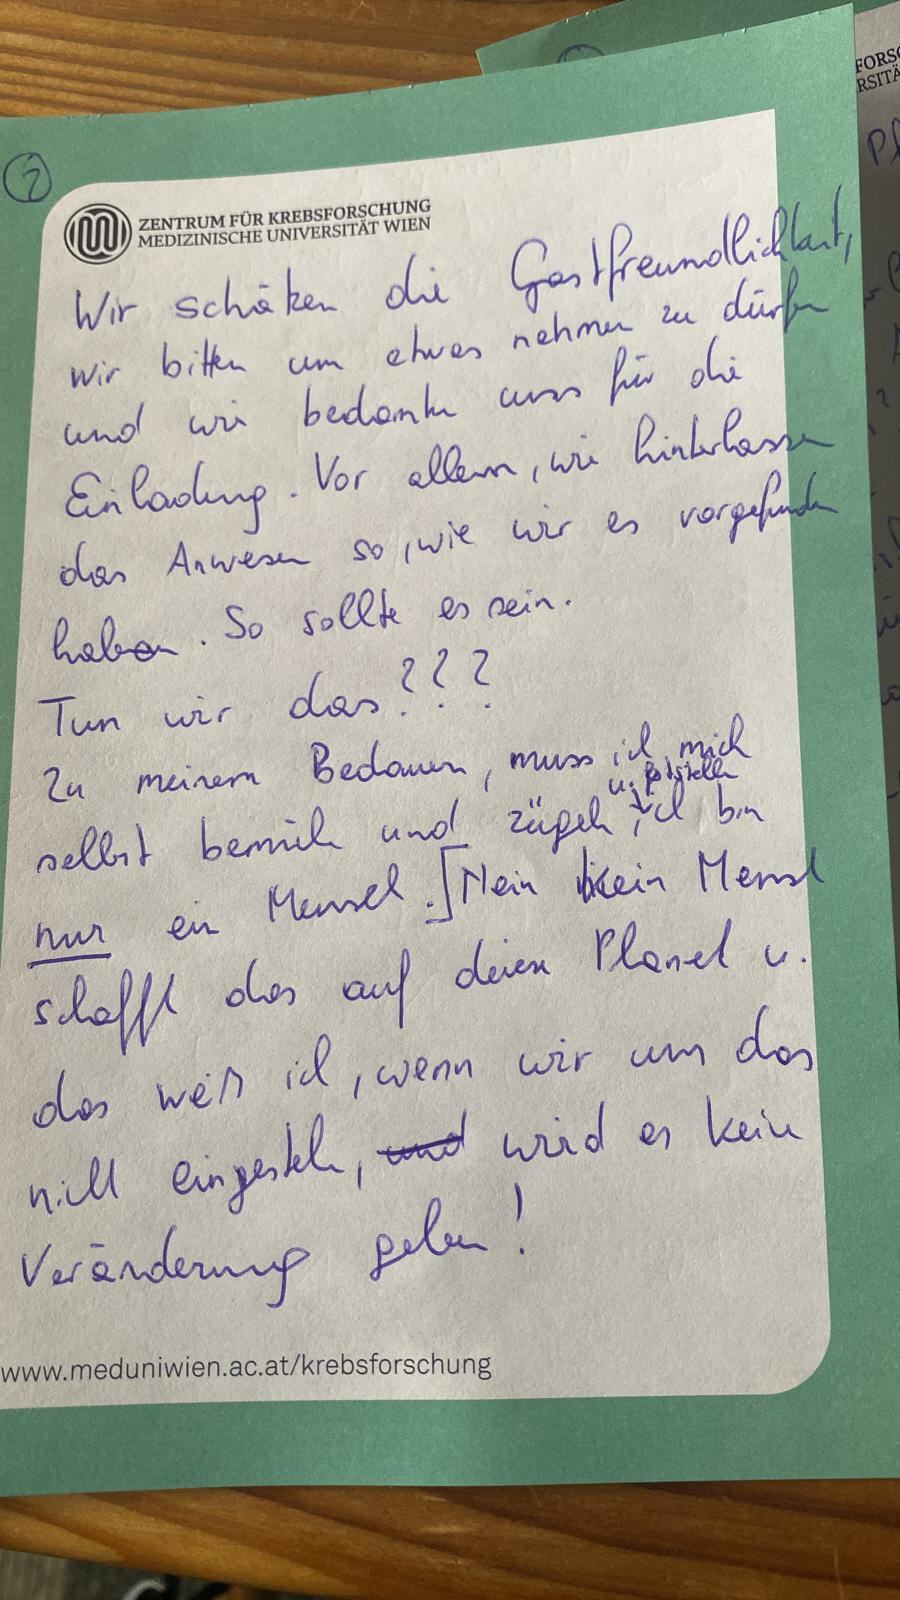 2
ZENTRUM FÜR KREBSFORSCHUNG
MEDIZINISCHE UNIVERSITÄT WIEN
Wir schätzen die Gastfreundlichkeit,
wir bitten um etwas nehmen zu dürfen
und wir bedanken uns für die
Einladung. Vor allem, wir hinterlassen
das Anwesen so, wie wir es vorgefunden
haben. So sollte es sein.
Tun wir das???
Zu meinem Bedauern, muss ich mich
u. feststellen
selbst bemüh und zügeln, ich bin
nur ein Mensch. Nein kein Mensch
schafft das auf diesem Planet u.
das weiß ich, wenn wir um das
nicht eingesteh, und wird es keine
Veränderung geben!
www.meduniwien.ac.at/krebsforschung